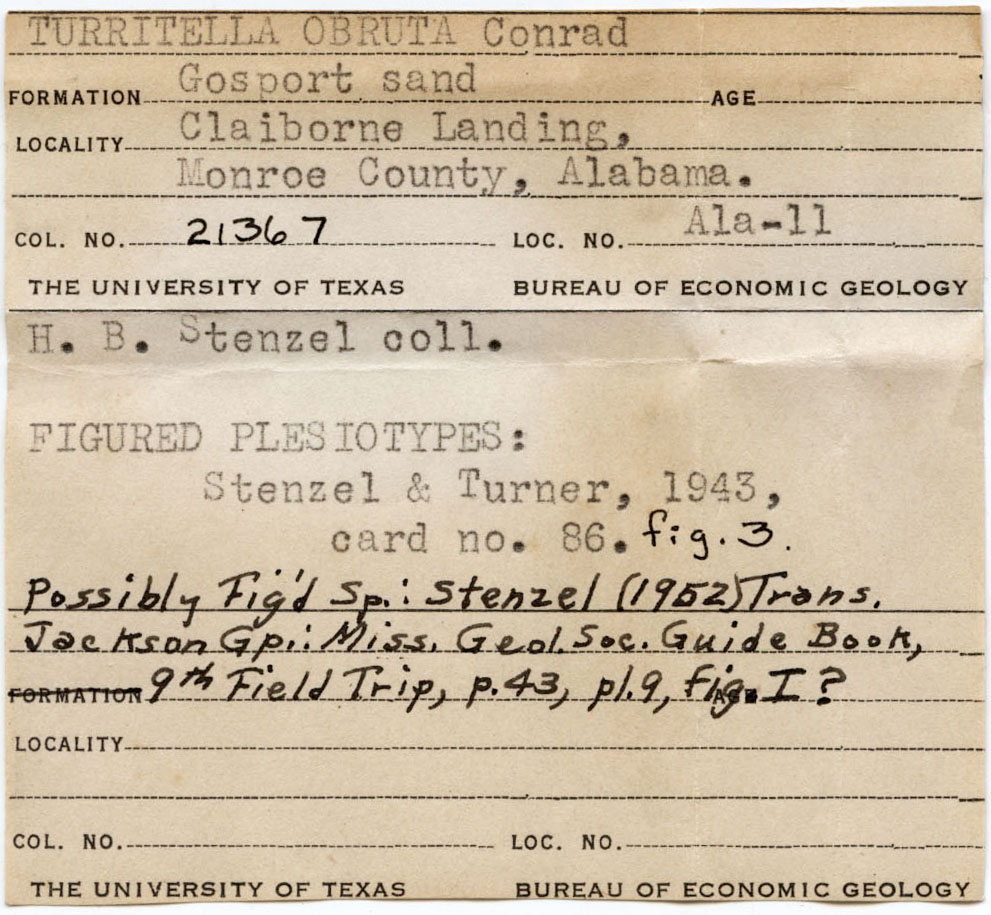 TURRITELLA OBRUTA Conrad
FORMATION Gosport sand AGE
LOCALITY Claiborne Landing,
Monroe County, Alabama.
COL. NO. 21367 LOC. NO. Ala-11
THE UNIVERSITY OF TEXAS BUREAU OF ECONOMIC GEOLOGY
H. B. Stenzel coll.
FIGURED PLESIOTYPES:
Stenzel & Turner, 1943,
card no. 86. fig. 3.
Possibly Fig'd Sp.: Stenzel (1952) Trans.
Jackson Gp.: Miss. Geol. Soc. Guide Book,
FORMATION 9th Field Trip, p.43, pl.9, fig. I? AGE
LOCALITY
COL. NO. LOC. NO.
THE UNIVERSITY OF TEXAS BUREAU OF ECONOMIC GEOLOGY